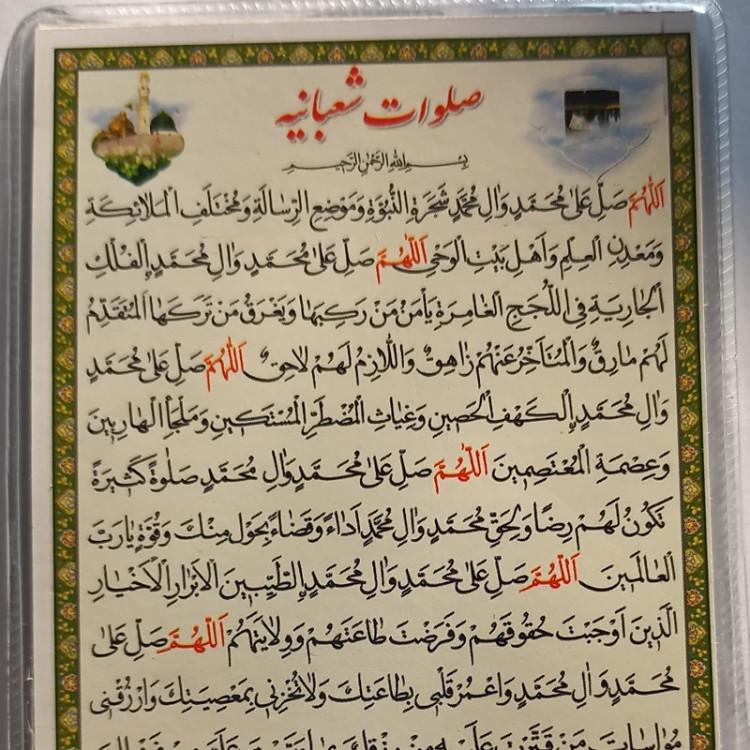 صلوات شعبانیه
بسم الله الرحمن الرحیم
اَللّٰهُمَّ صَلِّ عَلىٰ مُحَمَّدٍ وَاٰلِ مُحَمَّدٍ شَجَرَةِ النُّبُوَّةِ وَمَوْضِعِ الرِّسٰالَةِ وَمُخْتَلَفِ الْمَلاٰئِكَةِ
وَمَعْدِنِ الْعِلْمِ وَاَهْلِ بَيْتِ الْوَحْىِ اَللّٰهُمَّ صَلِّ عَلىٰ مُحَمَّدٍ وَاٰلِ مُحَمَّدٍ اِلْفُلْكِ
الْجٰارِيَةِ فِى اللُّجَجِ الْغٰامِرَةِ يَأْمَنُ مَنْ رَكِبَهٰا وَيَغْرَقُ مَنْ تَرَكَهَا الْمُتَقَدِّمُ
لَهُمْ مٰارِقٌ وَالْمُتَاَخِّرُ عَنْهُمْ زٰاهِقٌ وَاللّٰازِمُ لَهُمْ لاٰحِقٌ اَللّٰهُمَّ صَلِّ عَلىٰ مُحَمَّدٍ
وَاٰلِ مُحَمَّدٍ اِلْكَهْفِ الْحَصينِ وَغِيٰاثِ الْمُضْطَرِّ الْمُسْتَكينِ وَمَلْجَأِ الْهٰارِبينَ
وَعِصْمَةِ الْمُعْتَصِمينَ اَللّٰهُمَّ صَلِّ عَلىٰ مُحَمَّدٍ وَاٰلِ مُحَمَّدٍ صَلوٰةً كَثيرَةً
تَكُونُ لَهُمْ رِضًا وَلِحَقِّ مُحَمَّدٍ وَاٰلِ مُحَمَّدٍ اَدٰاءً وَقَضٰاءً بِحَوْلٍ مِنْكَ وَقُوَّةٍ يٰا رَبَّ
الْعٰالَمينَ اَللّٰهُمَّ صَلِّ عَلىٰ مُحَمَّدٍ وَاٰلِ مُحَمَّدٍ اِلطَّيِّبينَ الْاَبْرٰارِ الْاَخْيٰارِ
الَّذينَ اَوْجَبْتَ حُقُوقَهُمْ وَفَرَضْتَ طٰاعَتَهُمْ وَوِلاٰيَتَهُمْ اَللّٰهُمَّ صَلِّ عَلىٰ
مُحَمَّدٍ وَاٰلِ مُحَمَّدٍ وَاعْمُرْ قَلْبى بِطٰاعَتِكَ وَلاٰ تُخْزِنى بِمَعْصِيَتِكَ وَارْزُقْنى